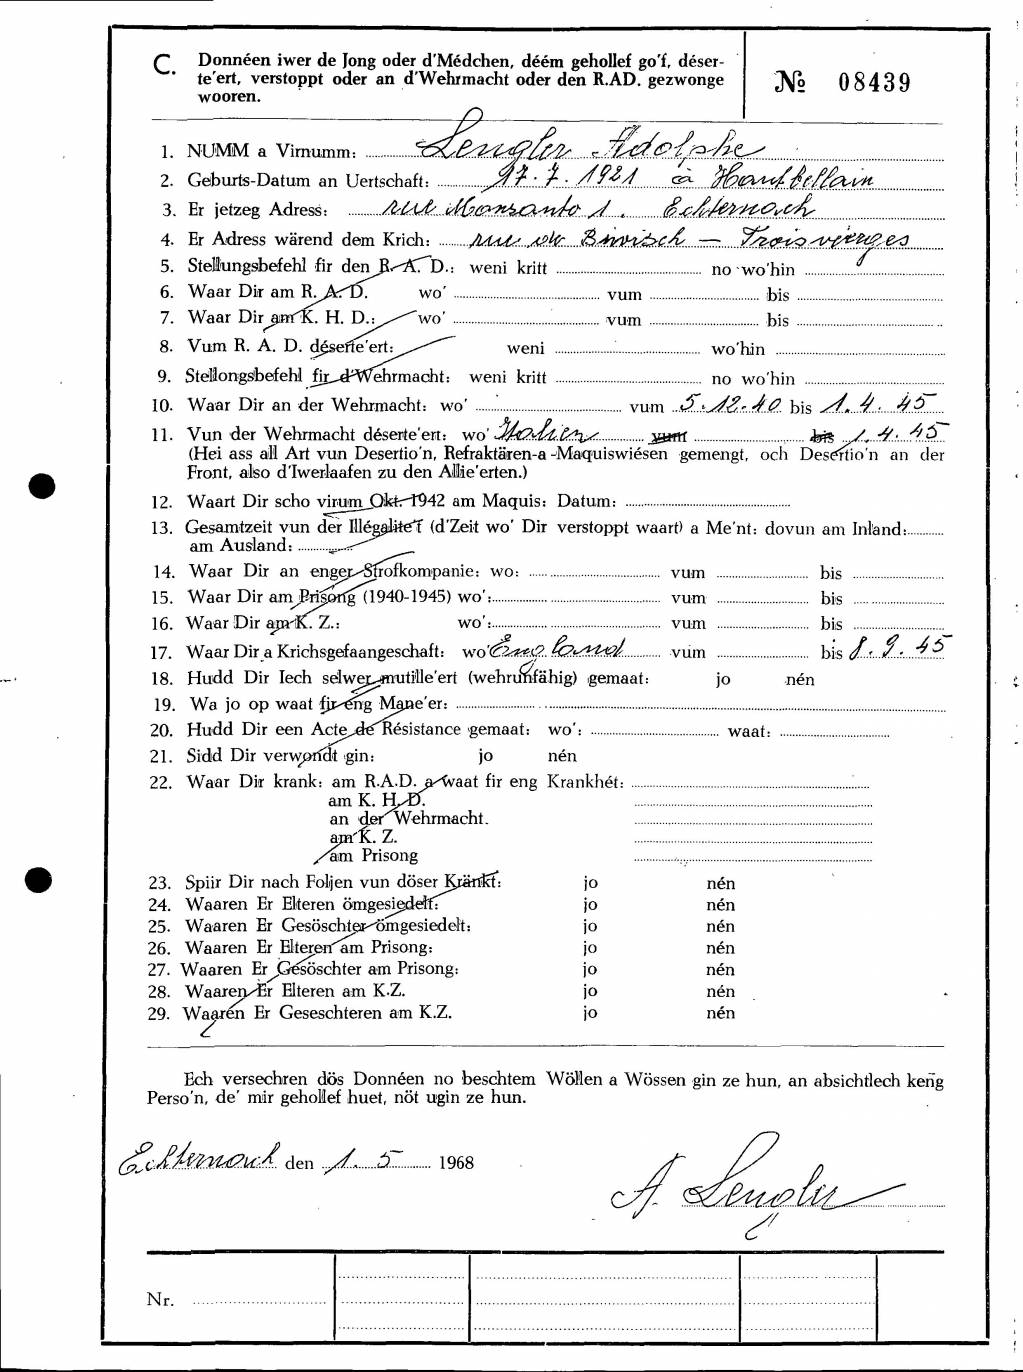 C. Donnéen iwer de Jong oder d'Médchen, déém gehollef go'f, déser-
te'ert, verstoppt oder an d'Wehrmacht oder den R.AD. gezwonge
wooren.
№ 08439
1. NUMM a Virnumm: Lengler Adolphe
2. Geburts-Datum an Uertschaft: 17.7.1921 à Hautbellain
3. Er jetzeg Adress: rue Monsanto 1. Echternach
4. Er Adress wärend dem Krich: rue de Binsfeld — Troisvierges
5. Stellungsbefehl fir den R. A. D.: weni kritt no wo'hin
6. Waar Dir am R. A. D. wo' vum bis
7. Waar Dir am K. H. D.: wo' vum bis
8. Vum R. A. D. déserte'ert: weni wo'hin
9. Stellongsbefehl fir d'Wehrmacht: weni kritt no wo'hin
10. Waar Dir an der Wehrmacht: wo' vum 5.12.40 bis 1.4.45
11. Vun der Wehrmacht déserte'ert: wo' Italien vum bis 1.4.45
(Hei ass all Art vun Desertio'n, Refraktären-a-Maquiswiésen gemengt, och Desertio'n an der
Front, also d'Iwerlaafen zu den Allie'erten.)
12. Waart Dir scho virum Okt. 1942 am Maquis: Datum:
13. Gesamtzeit vun der Illégalite't (d'Zeit wo' Dir verstoppt waart) a Me'nt: dovun am Inland:
am Ausland:
14. Waar Dir an enger Strofkompanie: wo: vum bis
15. Waar Dir am Prisong (1940-1945) wo': vum bis
16. Waar Dir am K. Z.: wo': vum bis
17. Waar Dir a Krichsgefaangeschaft: wo' England vum bis 8.9.45
18. Hudd Dir Iech selwer mutille'ert (wehrunfähig) gemaat: jo nén
19. Wa jo op waat fir eng Mane'er:
20. Hudd Dir een Acte de Résistance gemaat: wo': waat:
21. Sidd Dir verwondt gin: jo nén
22. Waar Dir krank: am R.A.D. a waat fir eng Krankhét:
am K. H. D.
an der Wehrmacht.
am K. Z.
am Prisong
23. Spiir Dir nach Foljen vun döser Kränkt: jo nén
24. Waaren Er Elteren ömgesiedelt: jo nén
25. Waaren Er Gesöschter ömgesiedelt: jo nén
26. Waaren Er Elteren am Prisong: jo nén
27. Waaren Er Gesöschter am Prisong: jo nén
28. Waaren Er Elteren am K.Z. jo nén
29. Waaren Er Geseschteren am K.Z. jo nén
Ech versechren dös Donnéen no beschtem Wöllen a Wössen gin ze hun, an absichtlech keng
Perso'n, de' mir gehollef huet, nöt ugin ze hun.
Echternach den 1. 5 1968
A. Lengler
Nr.